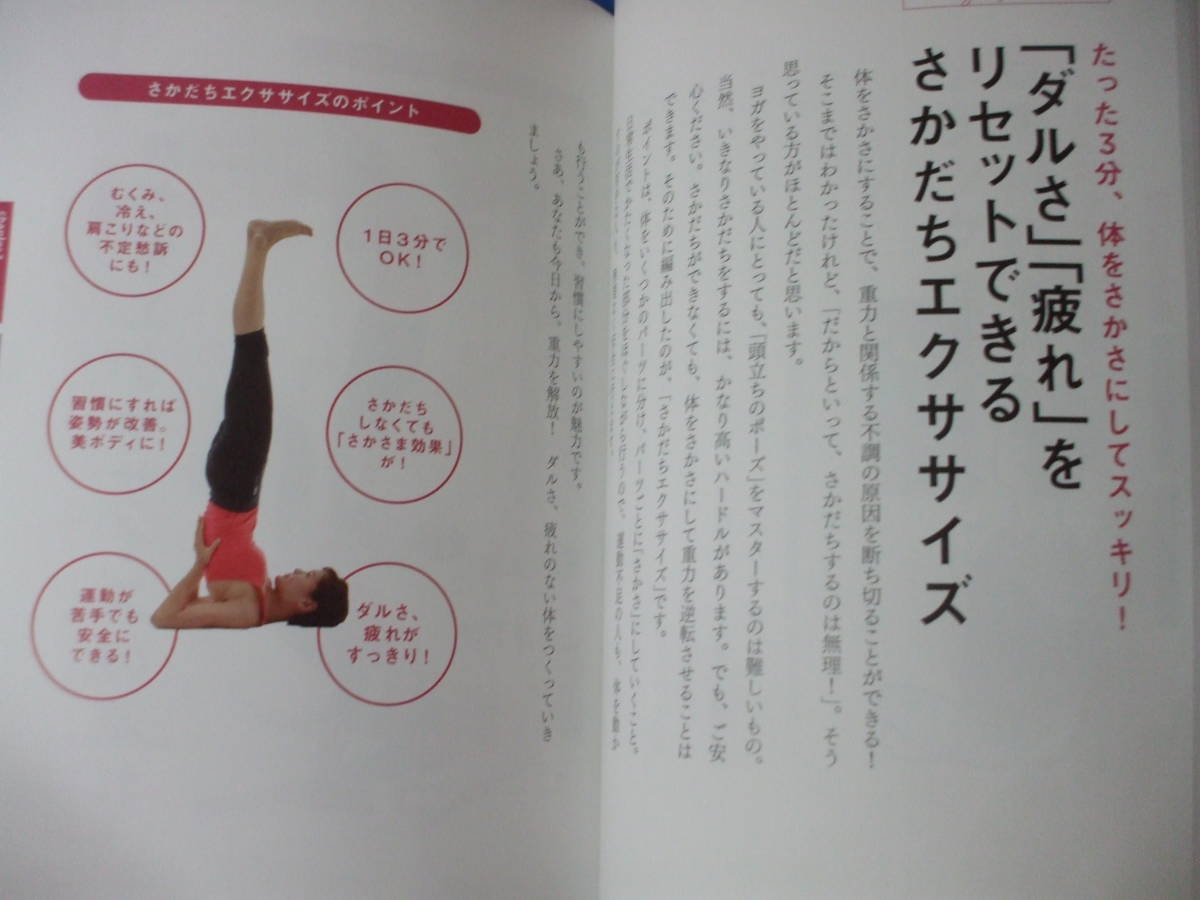 たった3分、体をさかさにしてスッキリ！
「ダルさ」「疲れ」を
リセットできる
さかだちエクササイズ
体をさかさにすることで、重力と関係する不調の原因を断ち切ることができる！
そこまではわかったけれど、「だからといって、さかだちするのは無理！」。そう
思っている方がほとんどだと思います。
ヨガをやっている人にとっても、「頭立ちのポーズ」をマスターするのは難しいもの。
当然、いきなりさかだちをするには、かなり高いハードルがあります。でも、ご安
心ください。さかだちができなくても、体をさかさにして重力を逆転させることは
できます。そのために編み出したのが、「さかだちエクササイズ」です。
ポイントは、体をいくつかのパーツに分け、パーツごとに「さかさ」にしていくこと。
も行うことができ、習慣にしやすいのが魅力です。
さあ、あなたも今日から、重力を解放！　ダルさ、疲れのない体をつくっていき
ましょう。
さかだちエクササイズのポイント
1日3分で
OK！
むくみ、
冷え、
肩こりなどの
不定愁訴
にも！
さかだち
しなくても
「さかさま効果」
が！
習慣にすれば
姿勢が改善。
美ボディに！
ダルさ、
疲れが
すっきり！
運動が
苦手でも
安全に
できる！